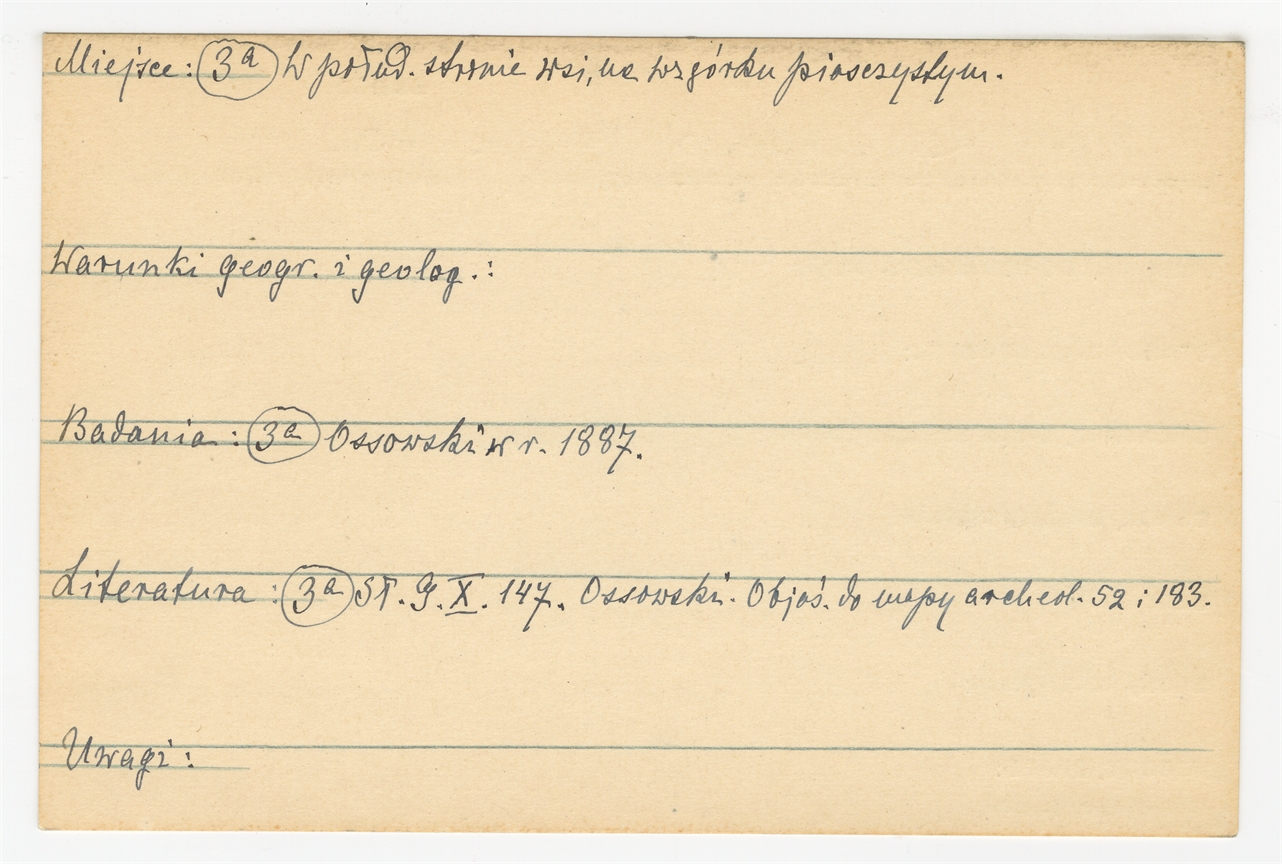 Miejsce: 3a W połud. stronie wsi, na wzgórku piasczystym.
Warunki geogr. i geolog.:
Badania: 3a Ossowski w r. 1887.
Literatura: 3a Sł. G. X. 147. Ossowski. Objaś. do mapy archeol. 52 i 183.
Uwagi: